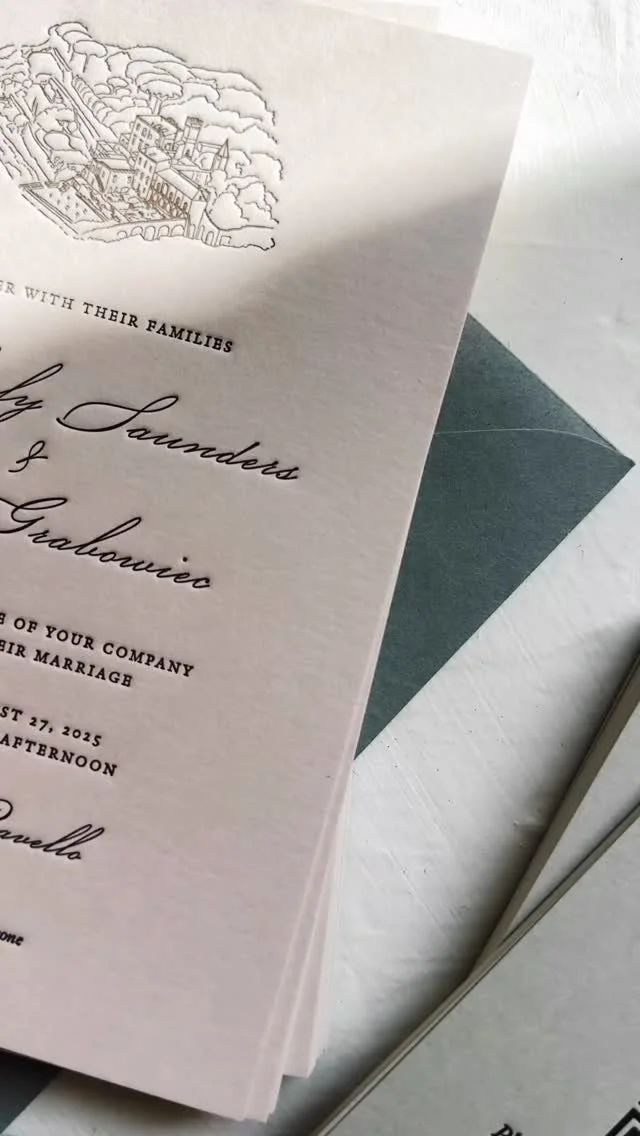 ER WITH THEIR FAMILIES
ly Saunders
&
Grabowiec
E OF YOUR COMPANY
EIR MARRIAGE
ST 27, 2025
AFTERNOON
Ravello
one